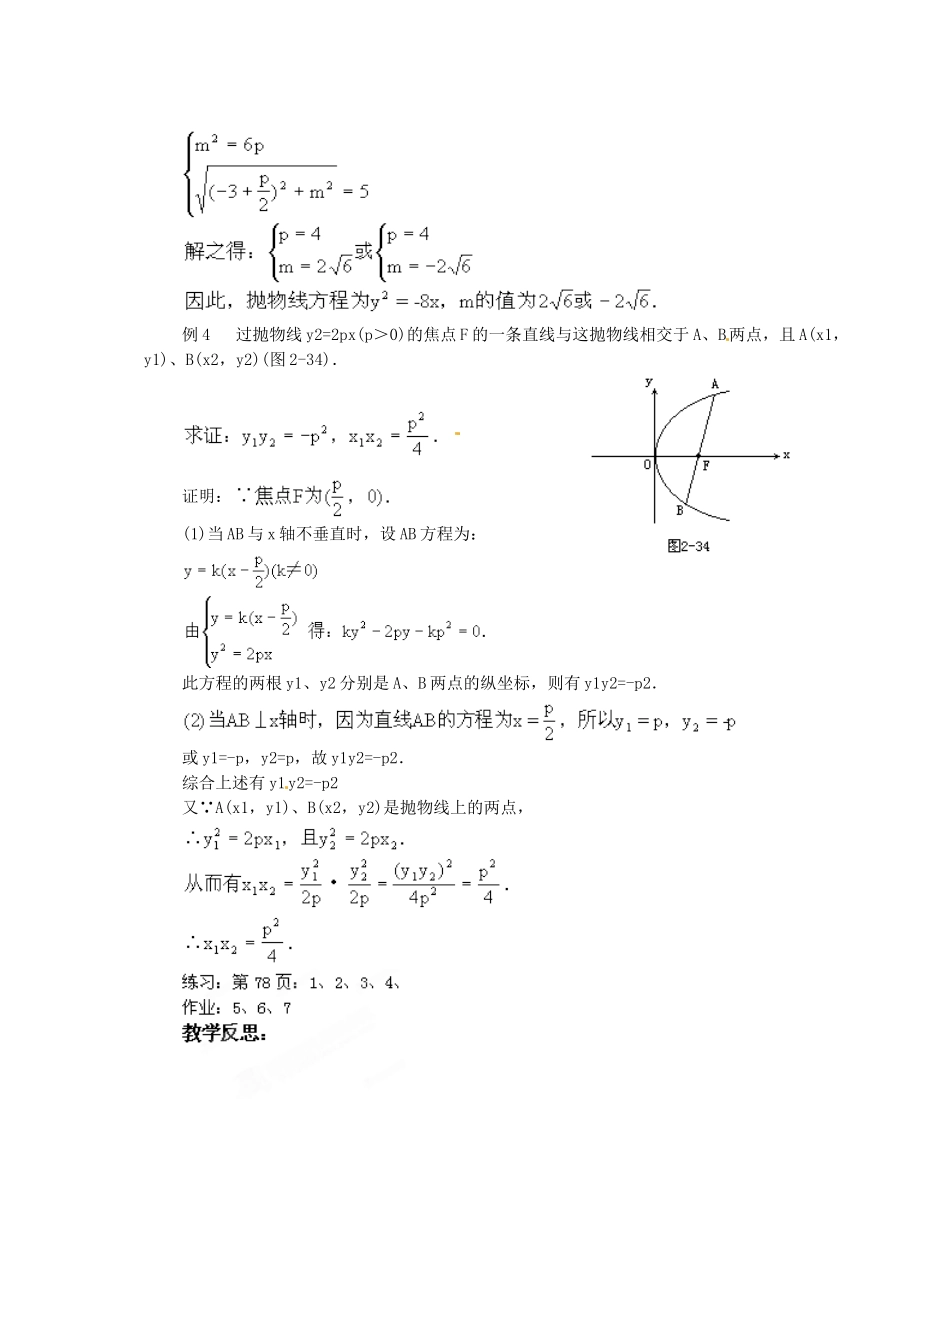 {m² = 6p
√((-3 + p/2)² + m²) = 5
解之得：{p = 4 m = 2√6 或 {p = 4 m = -2√6
因此，抛物线方程为y² = -8x，m的值为2√6或 - 2√6．
例 4 过抛物线 y2=2px(p＞0)的焦点 F 的一条直线与这抛物线相交于 A、B 两点，且 A(x1，
y1)、B(x2，y2)(图 2-34)．
y A
求证：y₁y₂ = -p²，x₁x₂ = p²/4．
O F x
证明：∵焦点F为(p/2，0)．
B
(1)当 AB 与 x 轴不垂直时，设 AB 方程为：
图2-34
y = k(x - p/2)(k≠0)
由{y = k(x - p/2) y² = 2px 得：ky² - 2py - kp² = 0．
此方程的两根 y1、y2 分别是 A、B 两点的纵坐标，则有 y1y2=-p2．
(2)当AB⊥x轴时，因为直线AB的方程为x = p/2，所以y₁ = p，y₂ = -p
或 y1=-p，y2=p，故 y1y2=-p2．
综合上述有 y1y2=-p2
又∵A(x1，y1)、B(x2，y2)是抛物线上的两点，
∴y₁² = 2px₁，且y₂² = 2px₂．
从而有x₁x₂ = y₁²/2p · y₂²/2p = (y₁y₂)²/4p² = p²/4．
∴x₁x₂ = p²/4．
练习：第 78 页：1、2、3、4、
作业：5、6、7
教学反思：